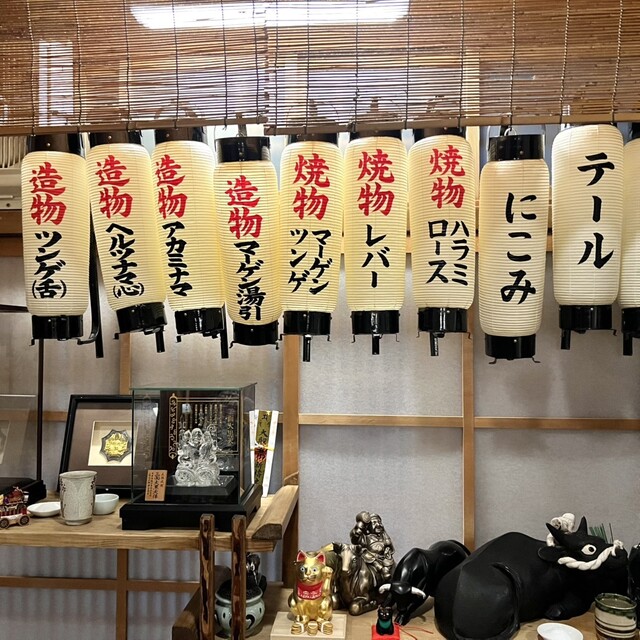 造物
ツンゲ(舌)
造物
ヘルツナマ(心)
造物
アカミナマ
造物
マーゲン湯引
焼物
マーゲン
ツンゲ
焼物
レバー
焼物
ハラミ
ロース
にこみ
テール